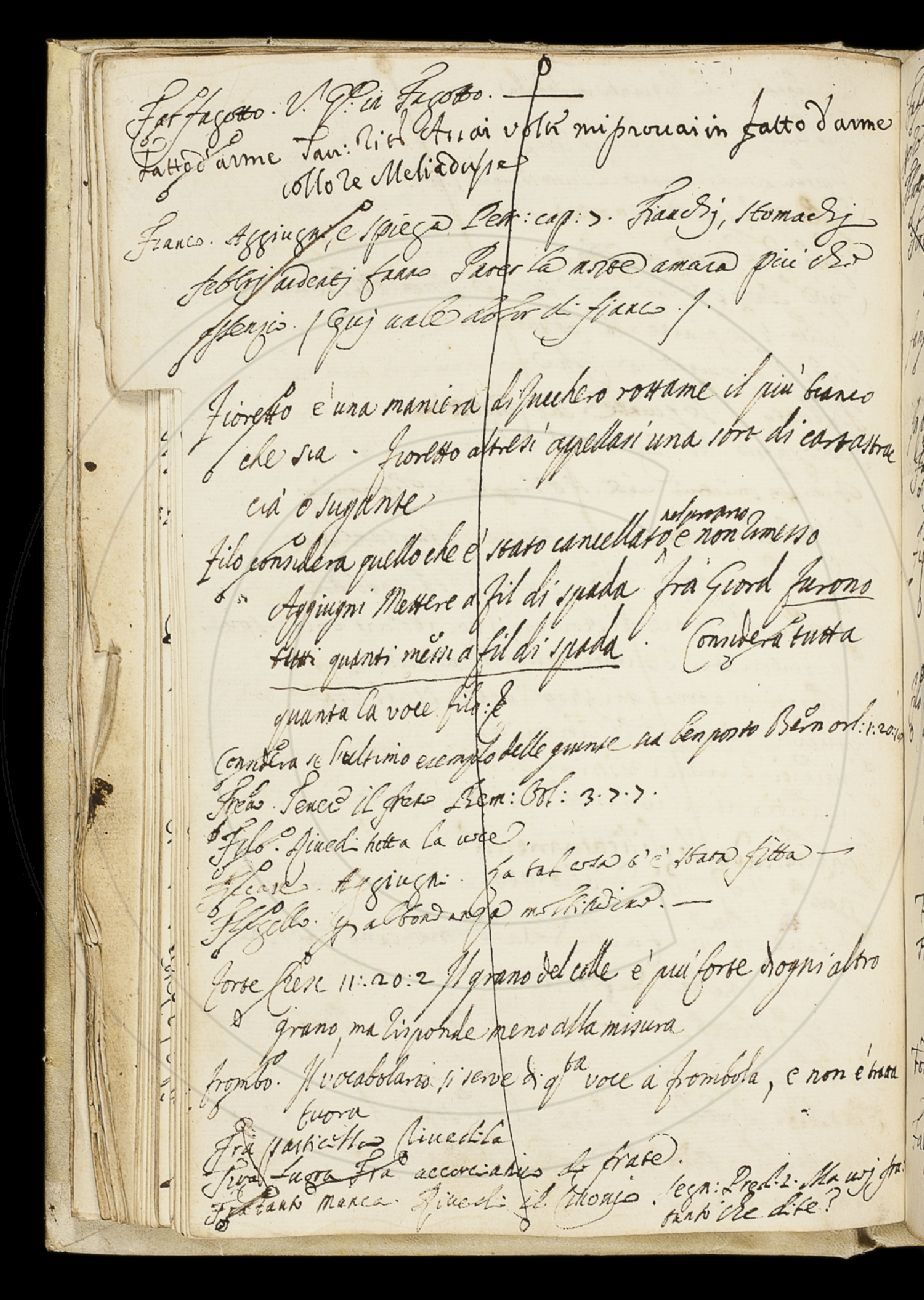 Far fagotto. V. in Fagotto.
Fatto d'arme Tav: Rit: Assai volte mi provai in fatto d'arme
collo re Meliadusse
Fianco. Aggiugni, e spiega Petr: cap: 7. Fianchi, stomachi
febbri ardenti fanno Parer la morte amara più che
assenzio. (Qui vale dolor di fianco.)
Fioretto è una maniera di Zucchero rottame il più bianco
che sia. fioretto altresì appellasi una sort di carta strac
cia o sugante
Filo considera quello che è stato cancellato e non rimesso
Aggiugni Mettere a fil di spada frà Giord furono
tutti quanti messi a fil di spada. Considera tutta
quanta la voce filo:
Considera se l'ultimo esempio delle giunte sia ben posto Bern orl: 1:20:
Freno. Tenere il freno Rem: 3.7.7.
Filo. Rivedi tutta la voce
Aggiugni. la tal cosa s'è stata fitta
abbondanza moltitudine.
Forte Cresc 11:20:2 Il grano del colle è più forte d'ogni altro
grano, ma risponde meno alla misura
frombo. Il vocabolario si serve di qta voce a frombola, e non è tratta
fuora
Frà particella Rivedila
Frà accorciativo di frate.
Frattanto manca. Rivedi il Cinonio. Segn: Pred: 2. Ma voi fra
tanto che dite?